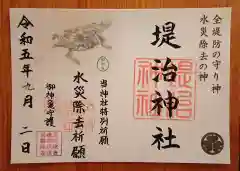 全堤防の守り神
水災除去の神
堤治神社
当神社特別祈願
水災除去祈願
御神亀守護
令和五年九月二日